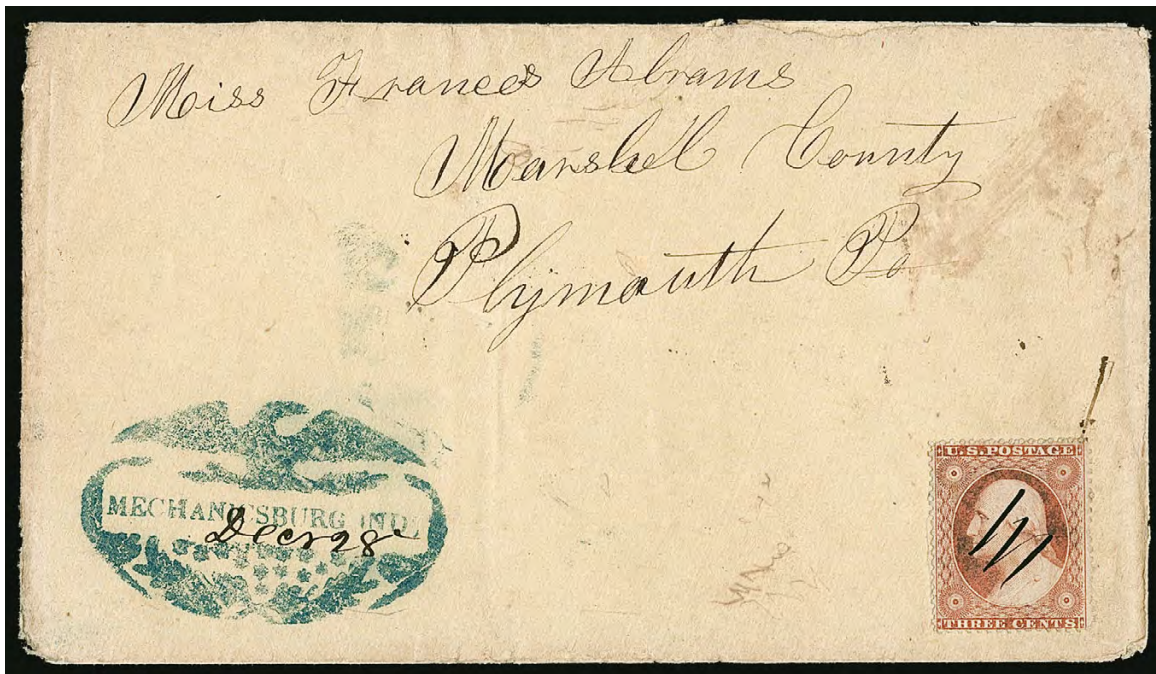 Miss Frances Abrams
Marshel County
Plymouth Po
MECHANICSBURG IND.
Decr 28
U.S. POSTAGE
THREE CENTS